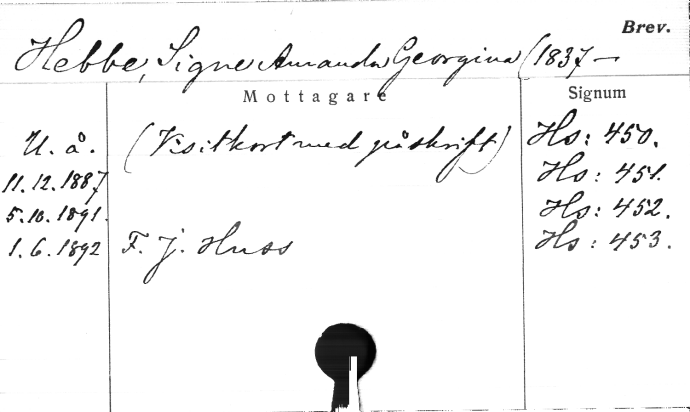 Brev.
Hebbe, Signe Amanda Georgina (1837 —
Mottagare Signum
U. å. (Visitkort med påskrift) Hs: 450.
11.12.1887 Hs: 451.
5.10.1891. Hs: 452.
1.6.1892 F. J. Huss Hs: 453.